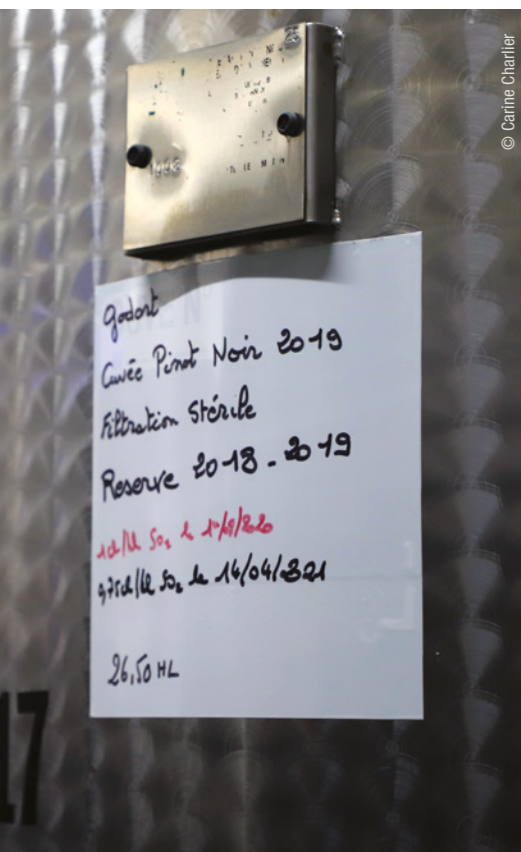 © Carine Charlier
Godart
Cuvée Pinot Noir 2019
Filtration Stérile
Reserve 2018 - 2019
1cl/hl SO2 le
0,75cl/hl SO2 le 14/04/2021
26,50 HL
17